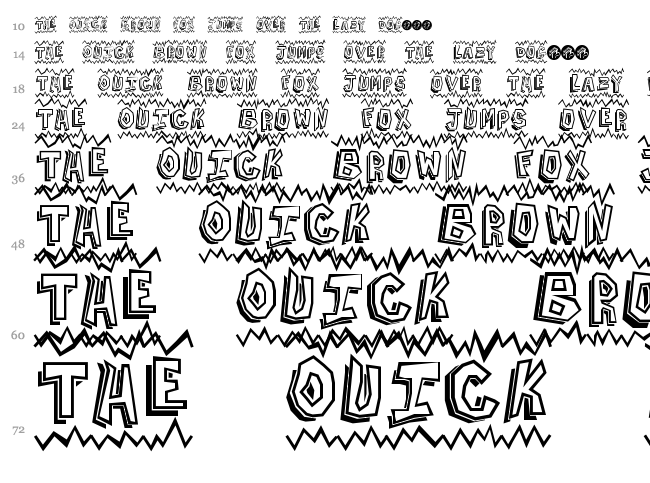 10 THE QUICK BROWN FOX JUMPS OVER THE LAZY DOG
14 THE QUICK BROWN FOX JUMPS OVER THE LAZY DOG
18 THE QUICK BROWN FOX JUMPS OVER THE LAZY
24 THE QUICK BROWN FOX JUMPS OVER
36 THE QUICK BROWN FOX
48 THE QUICK BROWN
60 THE QUICK BRO
72 THE QUICK